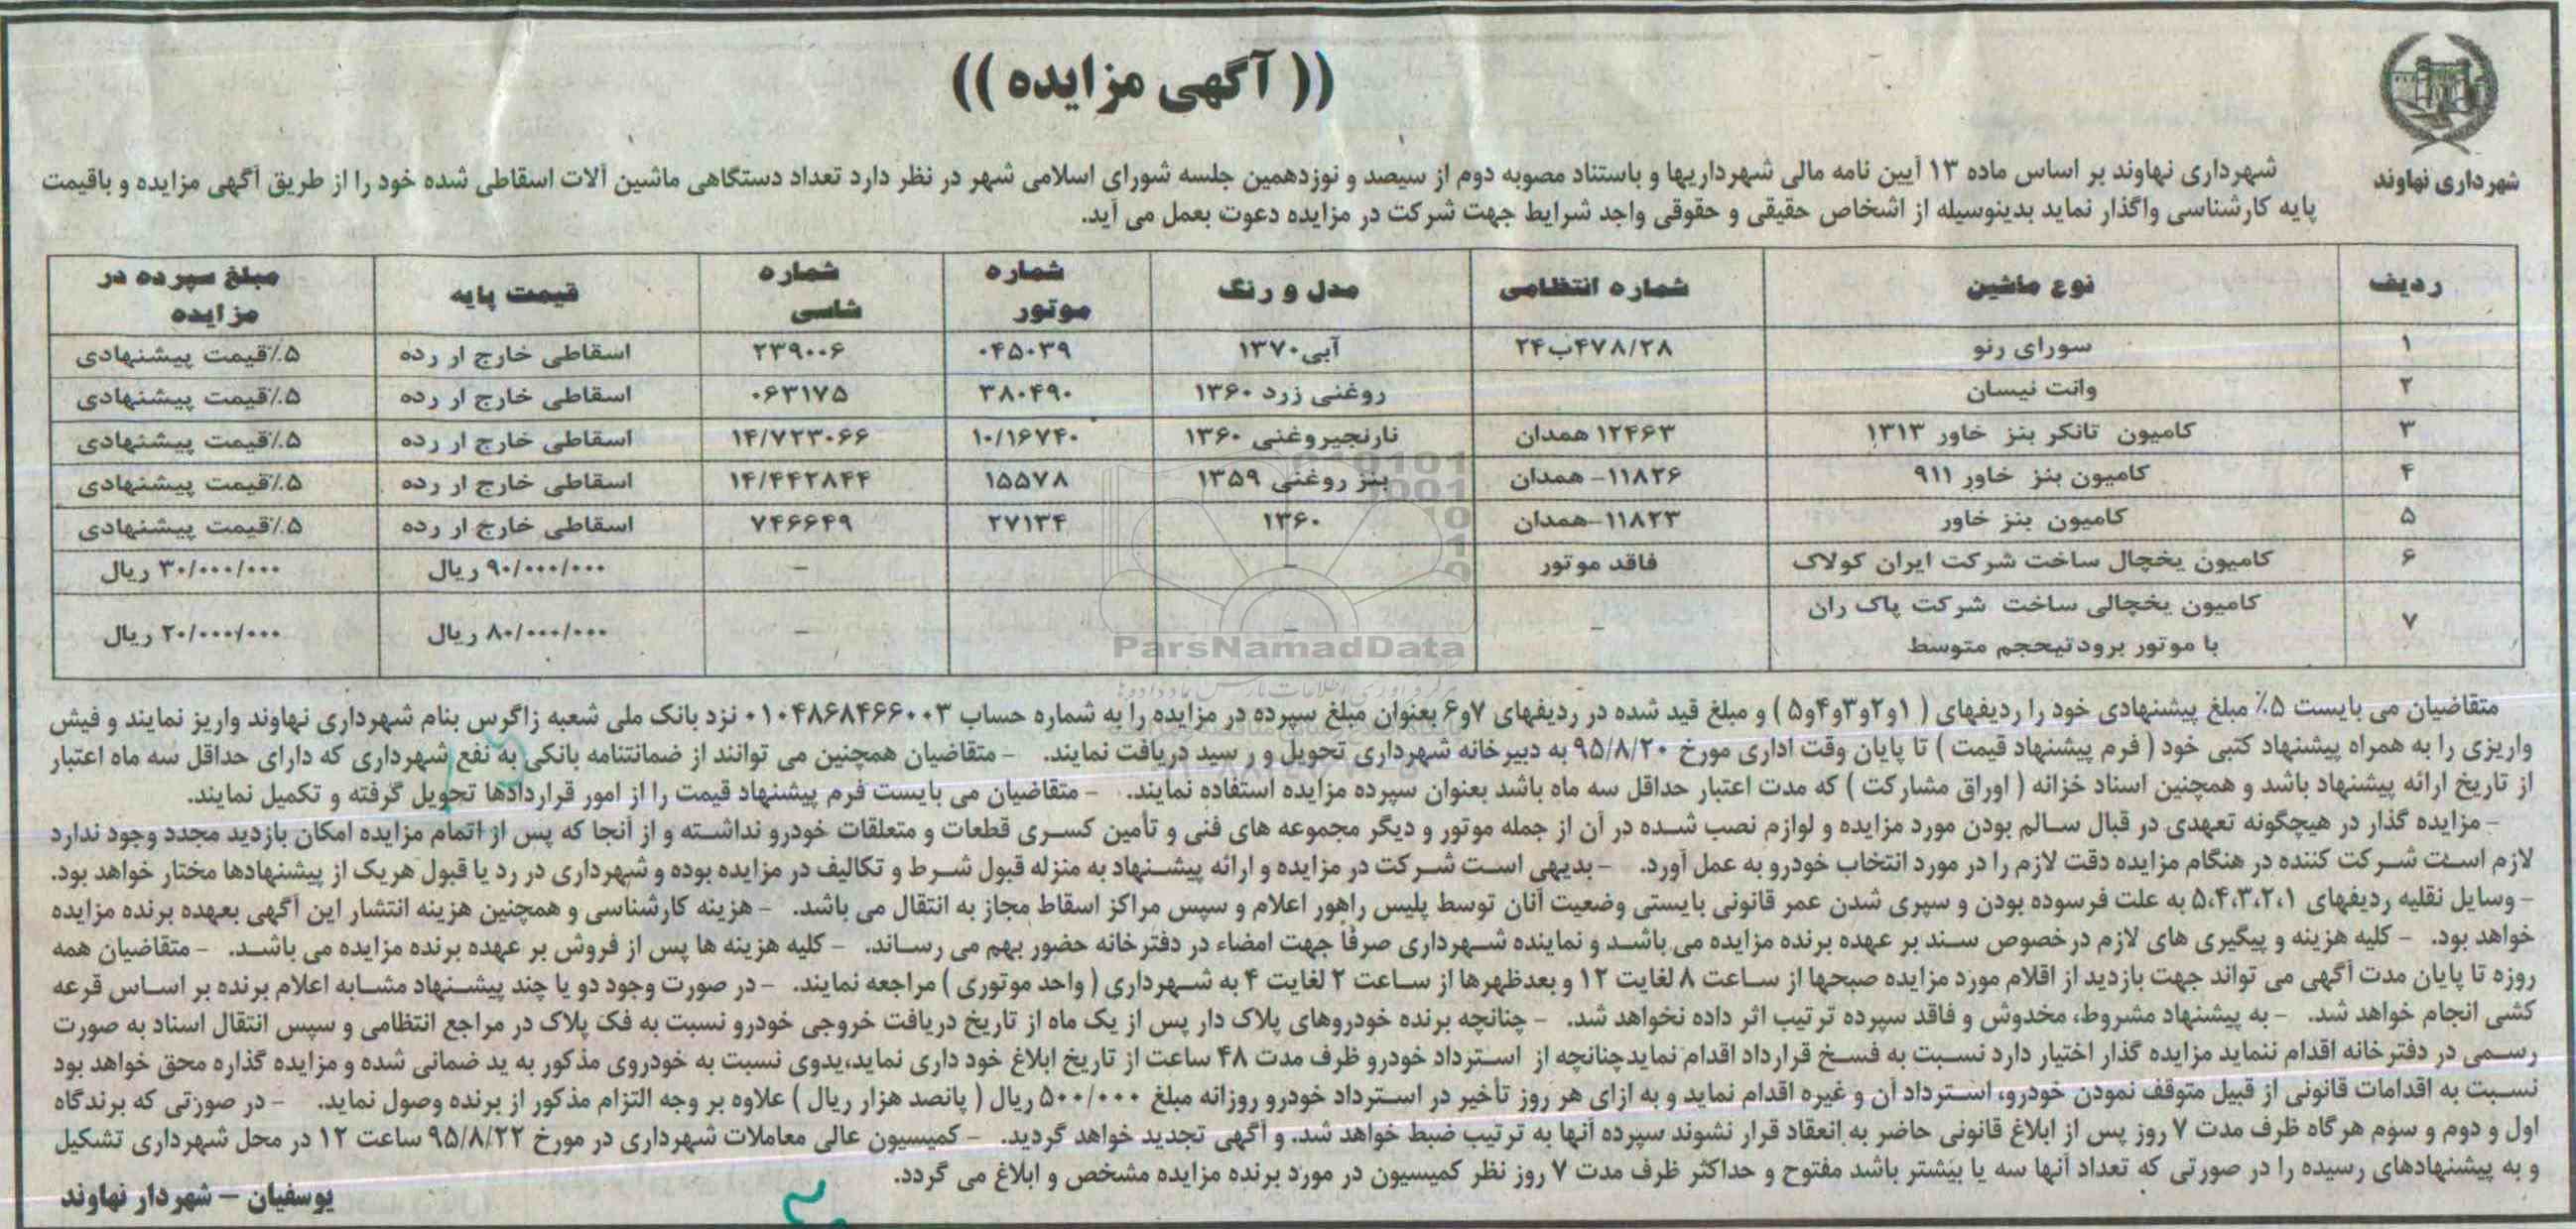 (( آگهی مزایده ))
شهرداری نهاوند
شهرداری نهاوند بر اساس ماده ۱۳ آیین نامه مالی شهرداریها و باستناد مصوبه دوم از سیصد و نوزدهمین جلسه شورای اسلامی شهر در نظر دارد تعداد دستگاهی ماشین آلات اسقاطی شده خود را از طریق آگهی مزایده و باقیمت
پایه کارشناسی واگذار نماید بدینوسیله از اشخاص حقیقی و حقوقی واجد شرایط جهت شرکت در مزایده دعوت بعمل می آید.
ردیف نوع ماشین شماره انتظامی مدل و رنگ شماره موتور شماره شاسی قیمت پایه مبلغ سپرده در مزایده
۱ سورای رنو ۴۷۸/۲۸ب۲۴ آبی۱۳۷۰ ۰۴۵۰۳۹ ۲۳۹۰۰۶ اسقاطی خارج ار رده ۵٪قیمت پیشنهادی
۲ وانت نیسان روغنی زرد ۱۳۶۰ ۳۸۰۴۹۰ ۰۶۳۱۷۵ اسقاطی خارج ار رده ۵٪قیمت پیشنهادی
۳ کامیون تانکر بنز خاور ۱۳۱۳ ۱۲۴۶۳ همدان نارنجیروغنی ۱۳۶۰ ۱۰/۱۶۷۴۰ ۱۴/۷۲۳۰۶۶ اسقاطی خارج ار رده ۵٪قیمت پیشنهادی
۴ کامیون بنز خاور ۹۱۱ ۱۱۸۲۶- همدان بنز روغنی ۱۳۵۹ ۱۵۵۷۸ ۱۴/۴۴۲۸۴۴ اسقاطی خارج ار رده ۵٪قیمت پیشنهادی
۵ کامیون بنز خاور ۱۱۸۲۳-همدان ۱۳۶۰ ۲۷۱۳۴ ۷۴۶۶۴۹ اسقاطی خارج ار رده ۵٪قیمت پیشنهادی
۶ کامیون یخچال ساخت شرکت ایران کولاک فاقد موتور – – ۹۰/۰۰۰/۰۰۰ ریال ۳۰/۰۰۰/۰۰۰ ریال
۷ کامیون یخچالی ساخت شرکت پاک ران با موتور برودتیحجم متوسط – – – ۸۰/۰۰۰/۰۰۰ ریال ۲۰/۰۰۰/۰۰۰ ریال
ParsNamadData
متقاضیان می بایست ۵٪ مبلغ پیشنهادی خود را ردیفهای ( ۱و۲و۳و۴و۵ ) و مبلغ قید شده در ردیفهای ۷و۶ بعنوان مبلغ سپرده در مزایده را به شماره حساب ۰۱۰۴۸۶۸۴۶۶۰۰۳ نزد بانک ملی شعبه زاگرس بنام شهرداری نهاوند واریز نمایند و فیش
واریزی را به همراه پیشنهاد کتبی خود ( فرم پیشنهاد قیمت ) تا پایان وقت اداری مورخ ۹۵/۸/۲۰ به دبیرخانه شهرداری تحویل و ر سید دریافت نمایند. - متقاضیان همچنین می توانند از ضمانتنامه بانکی به نفع شهرداری که دارای حداقل سه ماه اعتبار
از تاریخ ارائه پیشنهاد باشد و همچنین اسناد خزانه ( اوراق مشارکت ) که مدت اعتبار حداقل سه ماه باشد بعنوان سپرده مزایده استفاده نمایند. - متقاضیان می بایست فرم پیشنهاد قیمت را از امور قراردادها تحویل گرفته و تکمیل نمایند.
- مزایده گذار در هیچگونه تعهدی در قبال سالم بودن مورد مزایده و لوازم نصب شده در آن از جمله موتور و دیگر مجموعه های فنی و تأمین کسری قطعات و متعلقات خودرو نداشته و از آنجا که پس از اتمام مزایده امکان بازدید مجدد وجود ندارد
لازم است شرکت کننده در هنگام مزایده دقت لازم را در مورد انتخاب خودرو به عمل آورد. - بدیهی است شرکت در مزایده و ارائه پیشنهاد به منزله قبول شرط و تکالیف در مزایده بوده و شهرداری در رد یا قبول هریک از پیشنهادها مختار خواهد بود.
- وسایل نقلیه ردیفهای ۵،۴،۳،۲،۱ به علت فرسوده بودن و سپری شدن عمر قانونی بایستی وضعیت آنان توسط پلیس راهور اعلام و سپس مراکز اسقاط مجاز به انتقال می باشد. - هزینه کارشناسی و همچنین هزینه انتشار این آگهی بعهده برنده مزایده
خواهد بود. - کلیه هزینه و پیگیری های لازم درخصوص سند بر عهده برنده مزایده می باشد و نماینده شهرداری صرفاً جهت امضاء در دفترخانه حضور بهم می رساند. - کلیه هزینه ها پس از فروش بر عهده برنده مزایده می باشد. - متقاضیان همه
روزه تا پایان مدت آگهی می تواند جهت بازدید از اقلام مورد مزایده صبحها از ساعت ۸ لغایت ۱۲ و بعدظهرها از ساعت ۲ لغایت ۴ به شهرداری ( واحد موتوری ) مراجعه نمایند. - در صورت وجود دو یا چند پیشنهاد مشابه اعلام برنده بر اساس قرعه
کشی انجام خواهد شد. - به پیشنهاد مشروط، مخدوش و فاقد سپرده ترتیب اثر داده نخواهد شد. - چنانچه برنده خودروهای پلاک دار پس از یک ماه از تاریخ دریافت خروجی خودرو نسبت به فک پلاک در مراجع انتظامی و سپس انتقال اسناد به صورت
رسمی در دفترخانه اقدام ننماید مزایده گذار اختیار دارد نسبت به فسخ قرارداد اقدام نمایدچنانچه از استرداد خودرو ظرف مدت ۴۸ ساعت از تاریخ ابلاغ خود داری نماید،یدوی نسبت به خودروی مذکور به ید ضمانی شده و مزایده گذاره محق خواهد بود
نسبت به اقدامات قانونی از قبیل متوقف نمودن خودرو، استرداد آن و غیره اقدام نماید و به ازای هر روز تأخیر در استرداد خودرو روزانه مبلغ ۵۰۰/۰۰۰ ریال ( پانصد هزار ریال ) علاوه بر وجه التزام مذکور از برنده وصول نماید. - در صورتی که برندگاه
اول و دوم و سوم هرگاه ظرف مدت ۷ روز پس از ابلاغ قانونی حاضر به انعقاد قرار نشوند سپرده آنها به ترتیب ضبط خواهد شد. و آگهی تجدید خواهد گردید. - کمیسیون عالی معاملات شهرداری در مورخ ۹۵/۸/۲۲ ساعت ۱۲ در محل شهرداری تشکیل
و به پیشنهادهای رسیده را در صورتی که تعداد آنها سه یا بیشتر باشد مفتوح و حداکثر ظرف مدت ۷ روز نظر کمیسیون در مورد برنده مزایده مشخص و ابلاغ می گردد.
یوسفیان – شهردار نهاوند